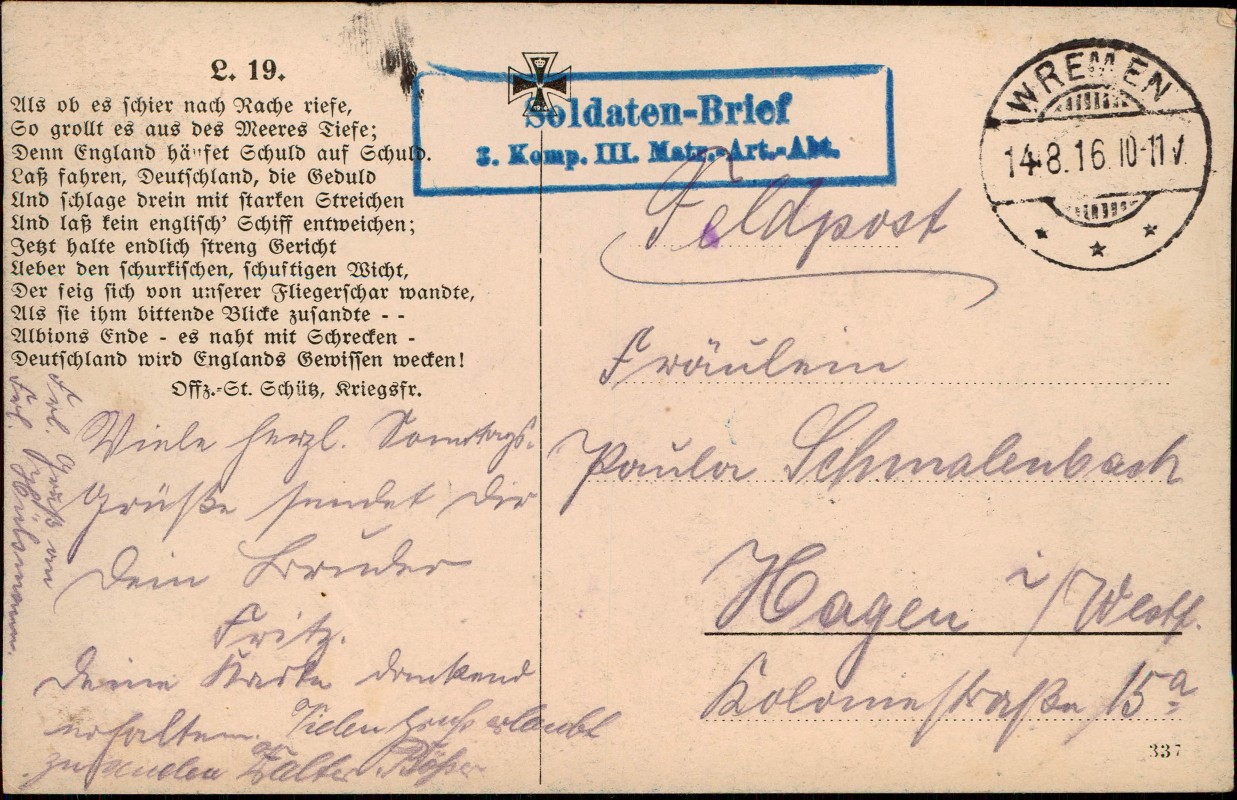 L. 19.
Als ob es schier nach Rache riefe,
So grollt es aus des Meeres Tiefe;
Denn England häufet Schuld auf Schuld.
Laß fahren, Deutschland, die Geduld
Und schlage drein mit starken Streichen
Und laß kein englisch' Schiff entweichen;
Jetzt halte endlich streng Gericht
Ueber den schurkischen, schuftigen Wicht,
Der feig sich von unserer Fliegerschar wandte,
Als sie ihm bittende Blicke zusandte - -
Albions Ende - es naht mit Schrecken -
Deutschland wird Englands Gewissen wecken!
Offz.-St. Schütz, Kriegsfr.
Viele herzl. Sonntags-
Grüße sendet Dir
Dein Bruder
Fritz.
Deine Karte dankend
erhalten. Vielen Gruß erlaubt
zu senden Walter
Frl. Gruß von
Frl.
Soldaten-Brief
3. Komp. III. Matr.-Art.-Abt.
WREMEN
14.8.16.10-11V.
Feldpost
Fräulein
Paula Schmalenbach
Hagen i/Westf.
Kolonnestraße 15a
337